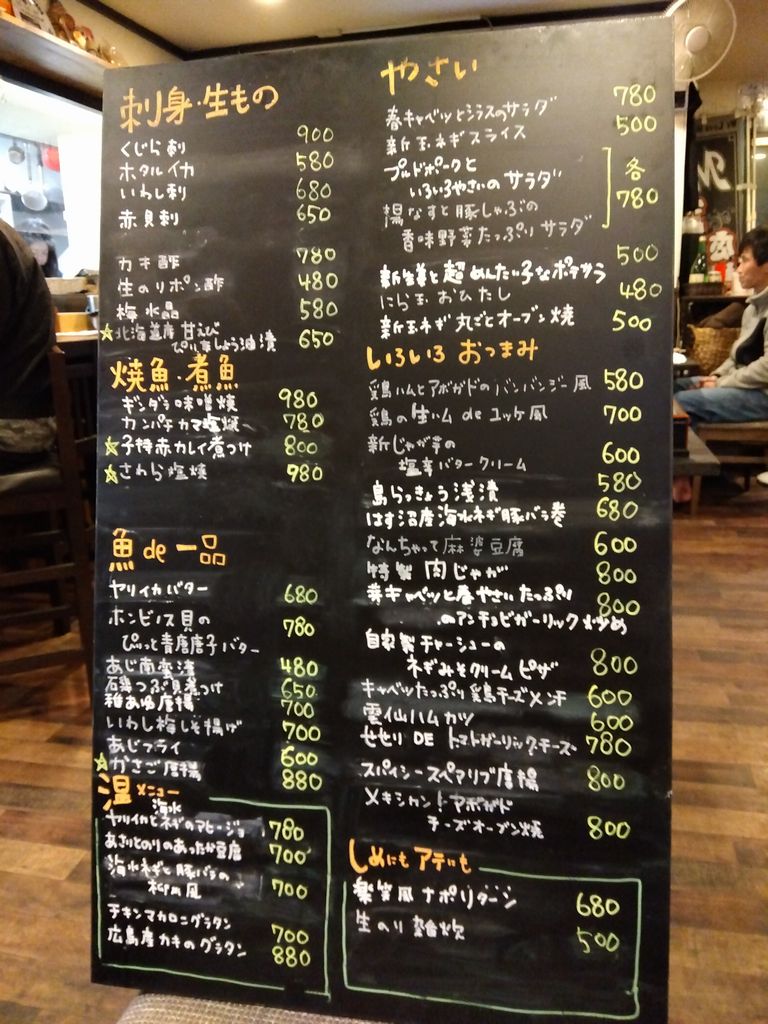 刺身・生もの
くじら刺 900
ホタルイカ 580
いわし刺 680
赤貝刺 650
カキ酢 780
生のりポン酢 480
梅水晶 580
☆北海道産甘えび
ぴり辛しょうゆ油漬 650
焼魚・煮魚
ギンダラ味噌焼 980
カンパチカマ塩焼 780
☆子持赤カレイ煮つけ 800
☆さわら塩焼 980
魚 de 一品
ヤリイカバター 680
ホンビノス貝の
ぴりっと青唐唐子バター 780
あじ南蛮漬 480
磯つぶ貝煮つけ 650
稚あゆ唐揚 700
いわし梅しそ揚げ 700
あじフライ 600
☆かさご唐揚 880
温メニュー
海水
ヤリイカとネギのアヒージョ 780
あさりとのりのあったか豆腐 700
海水ネギと豚バラの
柳川風 700
チキンマカロニグラタン 700
広島産カキのグラタン 880
やさい
春キャベツとシラスのサラダ 780
新玉ネギスライス 500
プルドポークと
いろいろやさいのサラダ
揚なすと豚しゃぶの
香味野菜たっぷりサラダ
各
780
新生姜と超めんたい子なポテサラ 500
にら玉おひたし 480
新玉ネギ丸ごとオーブン焼 500
いろいろおつまみ
鶏ハムとアボガドのバンバンジー風 580
鶏の生ハム de ユッケ風 700
新じゃが芋の
塩辛バタークリーム 600
島らっきょう浅漬 580
はす沼産海水ネギ豚バラ巻 680
なんちゃって麻婆豆腐 600
特製肉じゃが 800
芽キャベツと春やさいたっぷり
のアンチョビガーリック炒め 800
自家製チャーシューの
ネギみそクリームピザ 800
キャベツたっぷり鶏チーズメンチ 600
雲仙ハムカツ 600
せせり DE トマトガーリックチーズ 780
スパイシースペアリブ唐揚 800
メキシカン!アボガド
チーズオーブン焼 800
しめにもアテにも
楽笑風ナポリターン 680
生のり雑炊 500